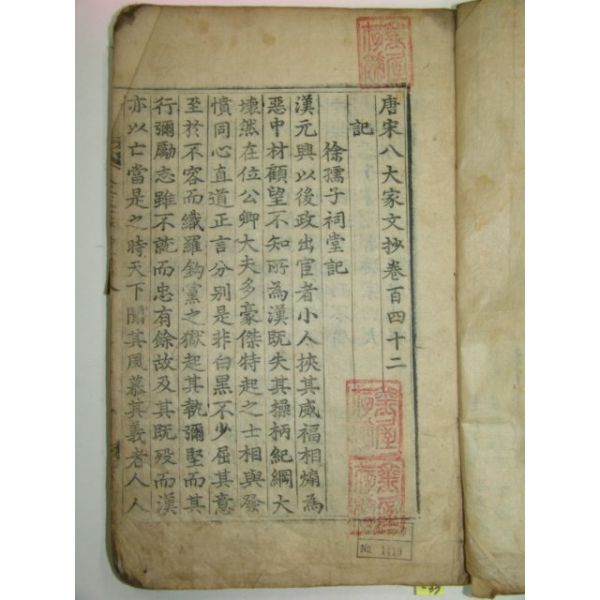 唐宋八大家文抄卷百四十二
記
徐孺子祠堂記
漢元興以後政出宦者小人挾其威福相煽爲
惡中材顧望不知所爲漢旣失其操柄紀綱大
壞然在位公卿大夫多豪傑特起之士相與發
憤同心直道正言分别是非白黑不少屈其意
至於不容而織羅鈎黨之獄起其執彌堅而其
行彌勵志雖不就而忠有餘故及其旣歿而漢
亦以亡當是之時天下聞其風慕其義者人人
No 1419